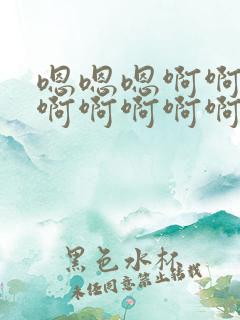 嗯嗯嗯啊啊
啊啊啊啊啊
黑色水杯
未经同意禁止转载